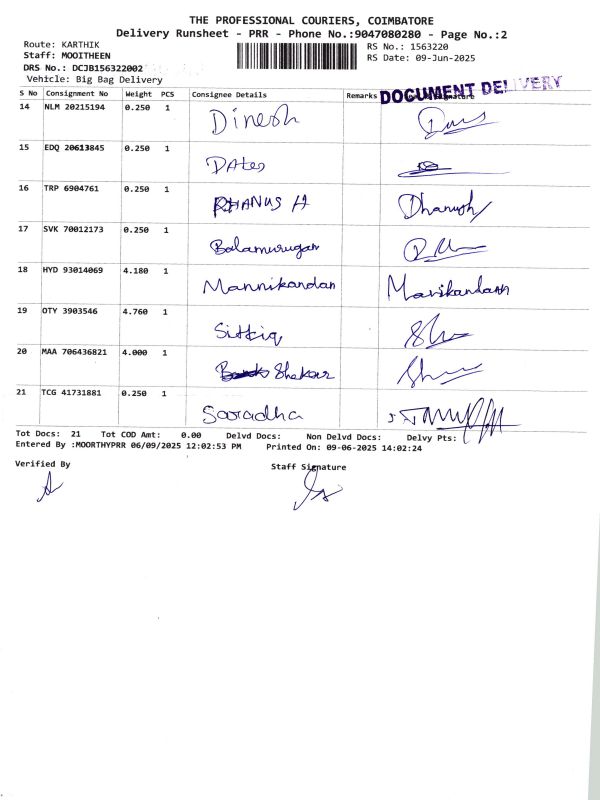 THE PROFESSIONAL COURIERS, COIMBATORE
Delivery Runsheet - PRR - Phone No.:9047080280 - Page No.:2
Route: KARTHIK RS No.: 1563220
Staff: MOOITHEEN RS Date: 09-Jun-2025
DRS No.: DCJB156322002
Vehicle: Big Bag Delivery
DOCUMENT DELIVERY
S No Consignment No Weight PCS Consignee Details Remarks Signature
14 NLM 20215194 0.250 1 Dinesh
15 EDQ 20613845 0.250 1
16 TRP 6904761 0.250 1 DHANUS H Dhanush
17 SVK 70012173 0.250 1 Balamurugan
18 HYD 93014069 4.180 1 Mannikandan Manikandan
19 OTY 3903546 4.760 1 Sittiq
20 MAA 706436821 4.000 1 Shekar
21 TCG 41731881 0.250 1 Sooradha
Tot Docs: 21 Tot COD Amt: 0.00 Delvd Docs: Non Delvd Docs: Delvy Pts:
Entered By :MOORTHYPRR 06/09/2025 12:02:53 PM Printed On: 09-06-2025 14:02:24
Verified By Staff Signature